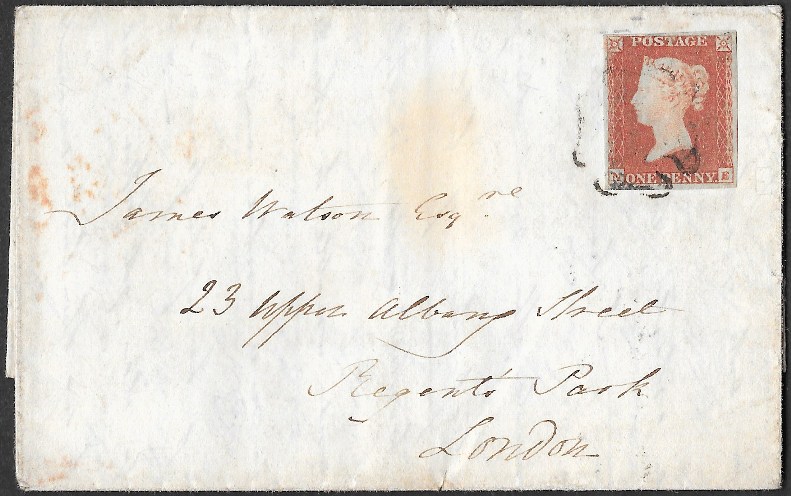 POSTAGE
N E
ONE PENNY
James Watson Esqre
23 Upper Albany Street
Regent's Park
London